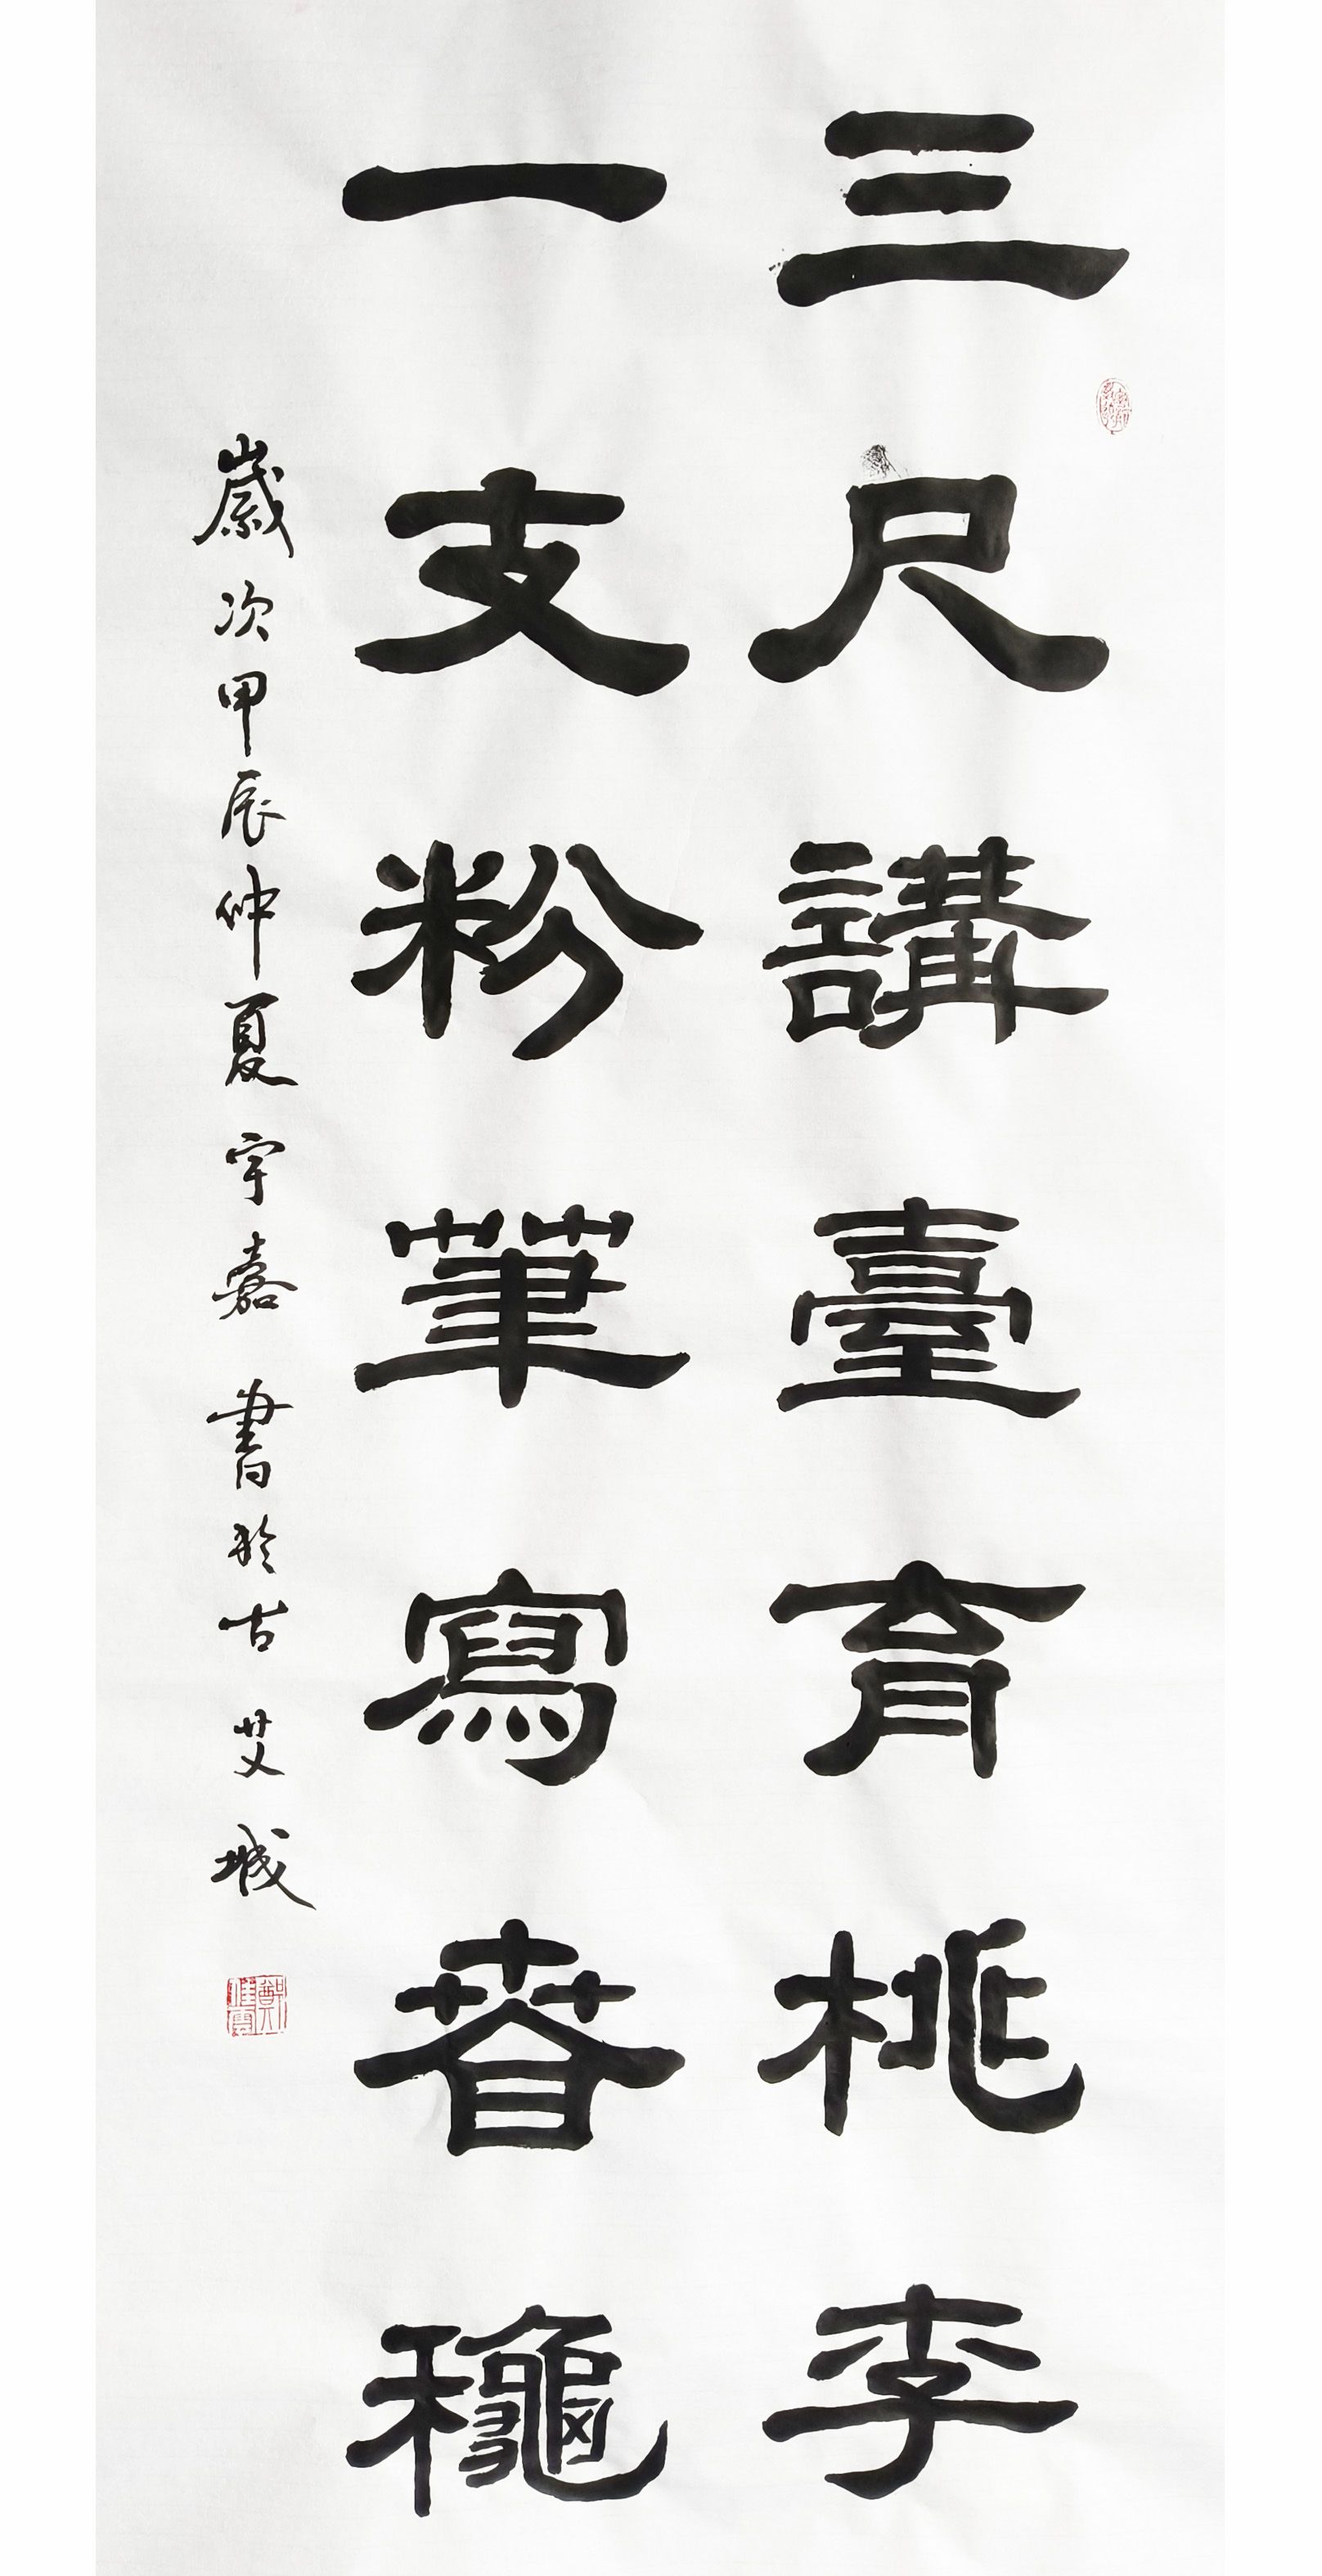 三尺講臺育桃李
一支粉筆寫春龝
歲次甲辰仲夏宇嘉書於古艾城